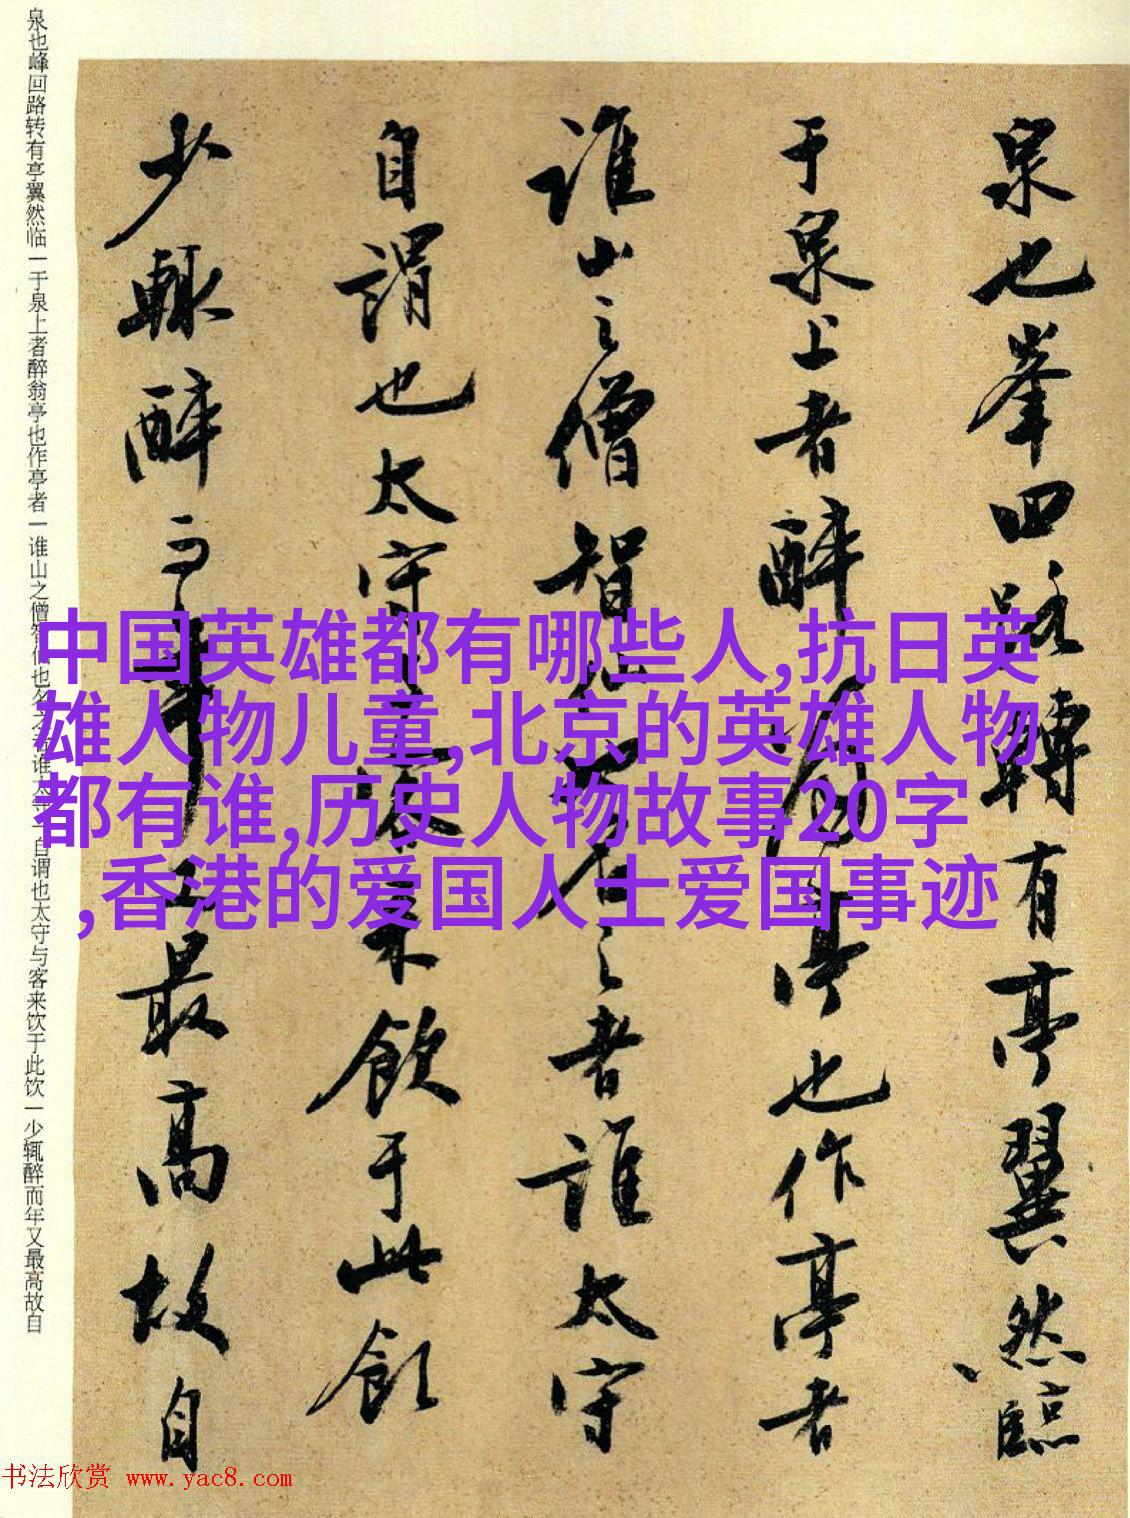 泉也峯回路轉有亭翼然臨
于泉上者醉翁亭也作亭者
誰山之僧智僊也名之者誰太守
自謂也太守與客來飲于此飲
少輒醉而年又最高故自
泉也峰回路转有亭翼然临一于泉上者醉翁亭也作亭者一谁山之僧智仙也名之者谁太守一自谓也太守与客来饮于此饮一少辄醉而年又最高故自
中国英雄都有哪些人,抗日英
雄人物儿童,北京的英雄人物
都有谁,历史人物故事20字
,香港的爱国人士爱国事迹
书法欣赏 www.yac8.com